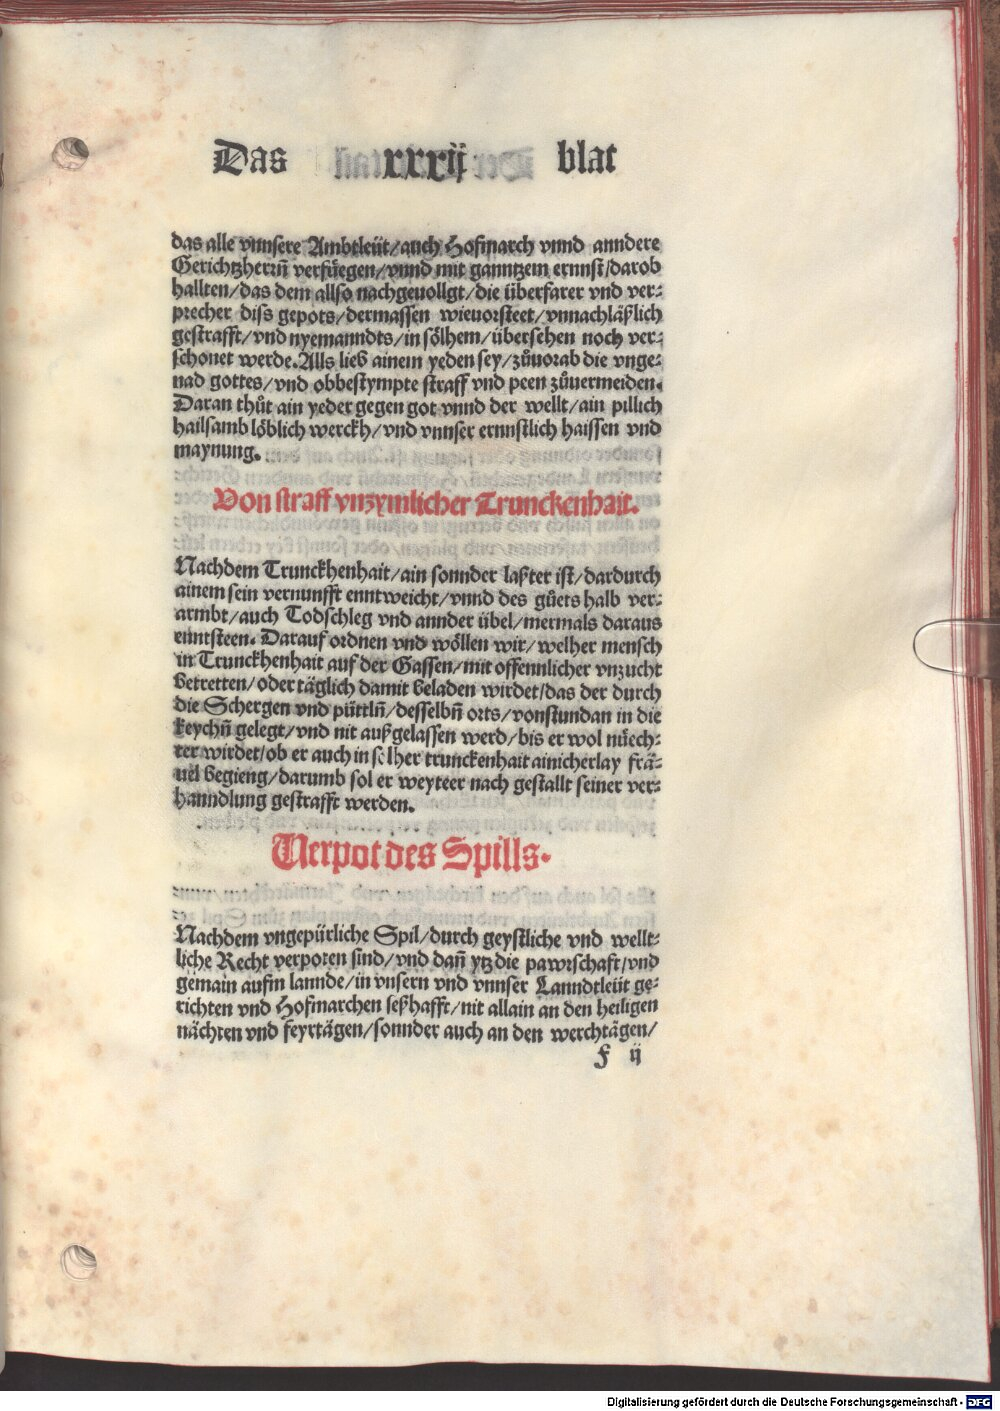 Das xxxij blat
das alle vnnsere Ambtleüt/auch Hofmarch vnnd anndere
Gerichtzherrn̄ verfüegen/vnnd mit ganntzem ernnst/darob
hallten/das dem allso nachgeuollgt/die überfarer vnd ver⸗
precher diss gepots/dermassen wieuorsteet/vnnachläßlich
gestrafft/vnd nyemanndts/in sölhem/übersehen noch ver⸗
schonet werde. Alls lieb ainem yeden sey/zůuorab die vnge⸗
nad gottes/vnd obbestympte straff vnd peen zůuermeiden.
Daran thůt ain yeder gegen got vnnd der wellt/ain pillich
hailsamb löblich werckh/vnd vnnser ernnstlich haissen vnd
maynung.
Von straff vnzymlicher Trunckenhait.
Nachdem Trunckhenhait/ain sonnder laßter ist/dardurch
ainem sein vernunfft enntweicht/vnnd des gůets halb ver⸗
armbt/auch Todschleg vnd annder übel/mermals daraus
enntsteen. Darauf ordnen vnd wöllen wir/welher mensch
in Trunckhenhait auf der Gassen/mit offennlicher vnzucht
betretten/oder täglich damit beladen wirdet/das der durch
die Schergen vnd püttln̄/desselbn̄ orts/vonstundan in die
keychn̄ gelegt/vnd nit außgelassen werd/bis er wol nüech⸗
ter wirdet/ob er auch in solher trunckenhait ainicherlay frä⸗
uel begieng/darumb sol er weyteer nach gestallt seiner ver⸗
hanndlung gestrafft werden.
Verpot des Spills.
Nachdem vngepürliche Spil/durch geystliche vnd wellt⸗
liche Recht verpoten sind/vnd dan̄ ytz die pawrschaft/vnd
gemain aufm lannde/in vnsern vnd vnnser Lanndtleüt ge⸗
richten vnd Hofmarchen seßhafft/nit allain an den heiligen
nächten vnd feyrtägen/sonnder auch an den werchtägen/
f ij
Digitalisierung gefördert durch die Deutsche Forschungsgemeinschaft - DFG